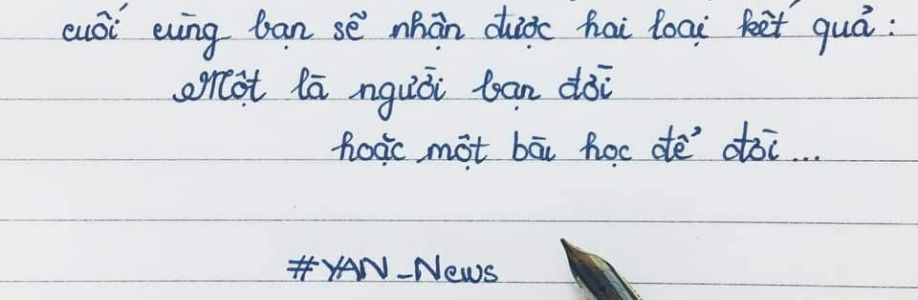 cuối cùng bạn sẽ nhận được hai loại kết quả:
Một là người bạn đời
hoặc một bài học để đời...
#YAN_News